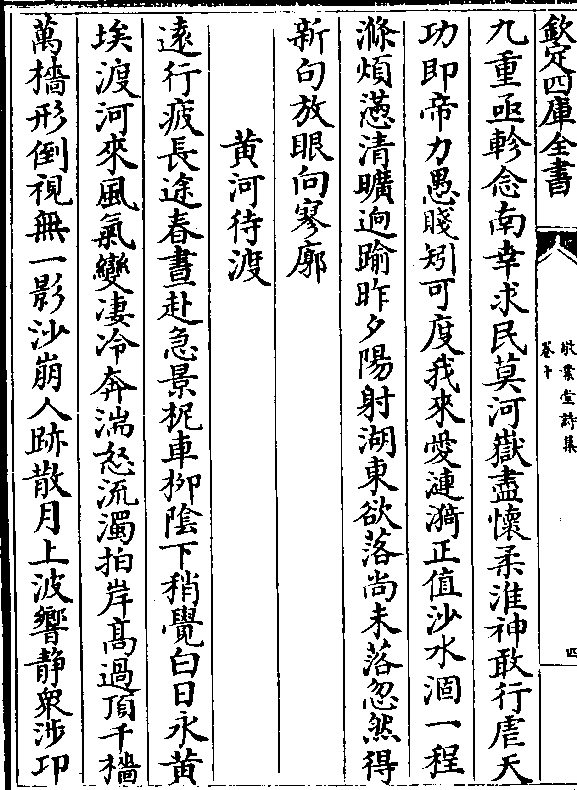 欽定四庫全書
敬業堂詩集
卷十
四
九重亟軫念南幸求民莫河嶽盡懷柔淮神敢行虐天
功即帝力愚賤矧可度我來愛漣漪正值沙水涸一程
滌煩懣清曠逈踰昨夕陽射湖東欲落尚未落忽然得
新句放眼向寥廓
黄河待渡
逺行疲長途春晝赴急景柅車栁陰下稍覺白日永黄
埃渡河來風氣變凄冷奔湍怒流濁拍岸髙過頂千檣
萬檣形倒視無一影沙崩人跡散月上波響静衆涉卬